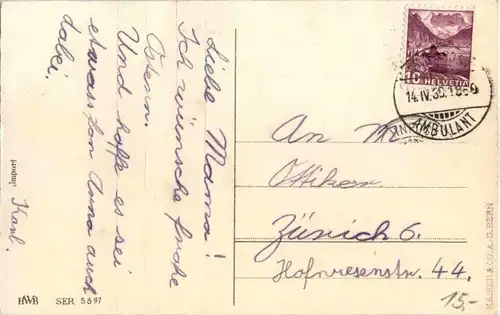 Liebe Mama!
Ich wünsche frohe
Ostern.
Und hoffe es sei
etwas von Anna auch
dabei.
Karl.
Import
HWB SER 5897
10 HELVETIA
14.IV.36.18
AMBULANT
An
Ottiker
Zürich 6.
Hofwiesenstr. 44.
15,-
KAISER & CO. A.-G. BERN